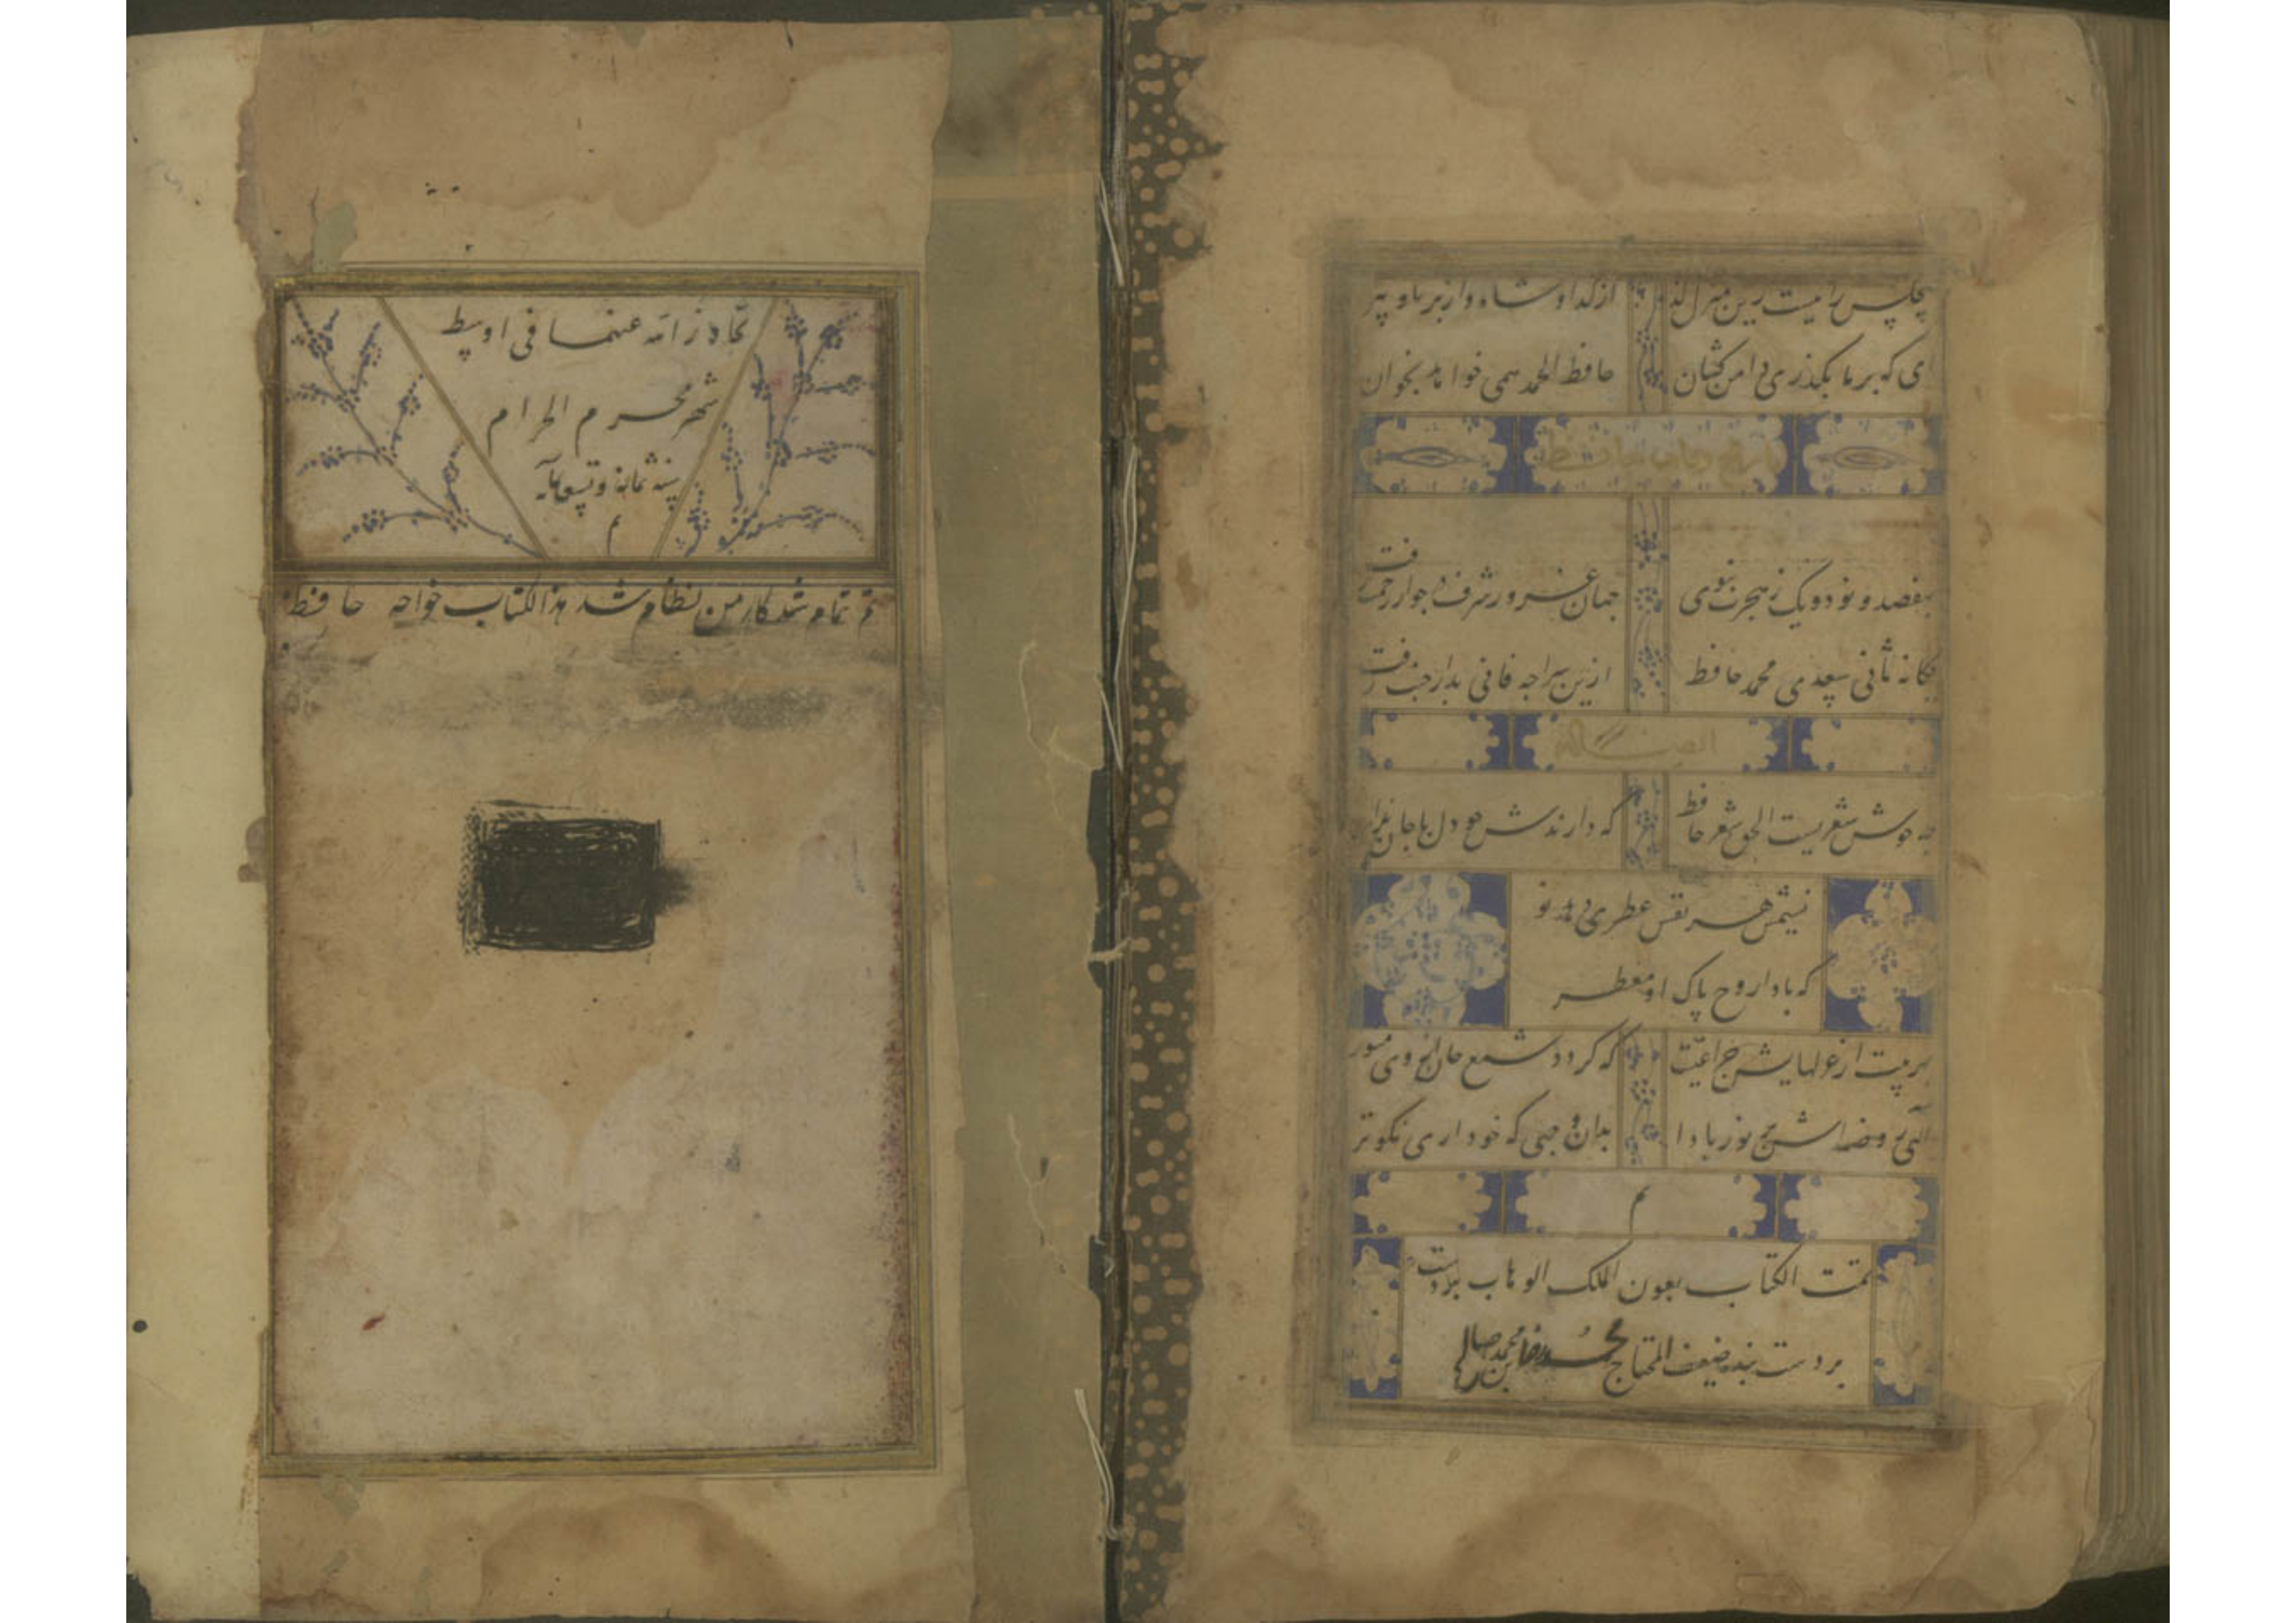 هیچکس را نیست زین منزل گذر از گدا و شاه و از برنا و پیر
ای که بر ما بگذری دامن کشان حافظ الحمد همی خواهد بخوان
تاریخ وفات حافظ
بهفصد و نود و یک ز هجرت نبوی جهان فضل و شرف در جوار رحمت رفت
یگانه ثانی سعدی محمد حافظ ازین سراچه فانی بدار جنت رفت
چه خوش شعریست الحق شعر حافظ که دارندش چو دل با جان برابر
نسیمش هر نفس عطری دهد نو
که بادا روح پاک او معطر
بهر بیت از غزلهایش چراغیست که گردد شمع جان از وی منور
الهی روضه‌اش پر نور بادا بدان وجهی که خود داری نکوتر
تم
تمت الکتاب بعون الملک الوهاب بر دست
بر دست بنده ضعیف المحتاج بن محمد صالح
تجاوز الله عنهما فی اوسط
شهر محرم الحرام
سنه ثمان و تسعمایه
م
تم تمام شد کار من نظام شد هذا الکتاب خواجه حافظ